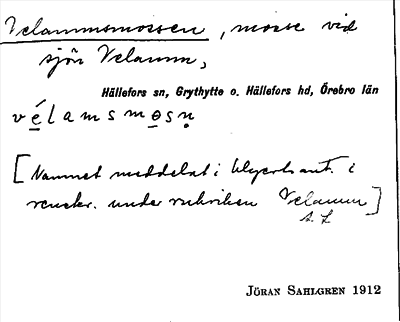 Velammsmossen, mosse vid
sjön Velamm,
Hällefors sn, Grythytte o. Hällefors hd, Örebro län
vé̱lamsmo̱sṇ
[Namnet meddelat i uant. i
under rubriken Velamm]
s. L
JÖRAN SAHLGREN 1912